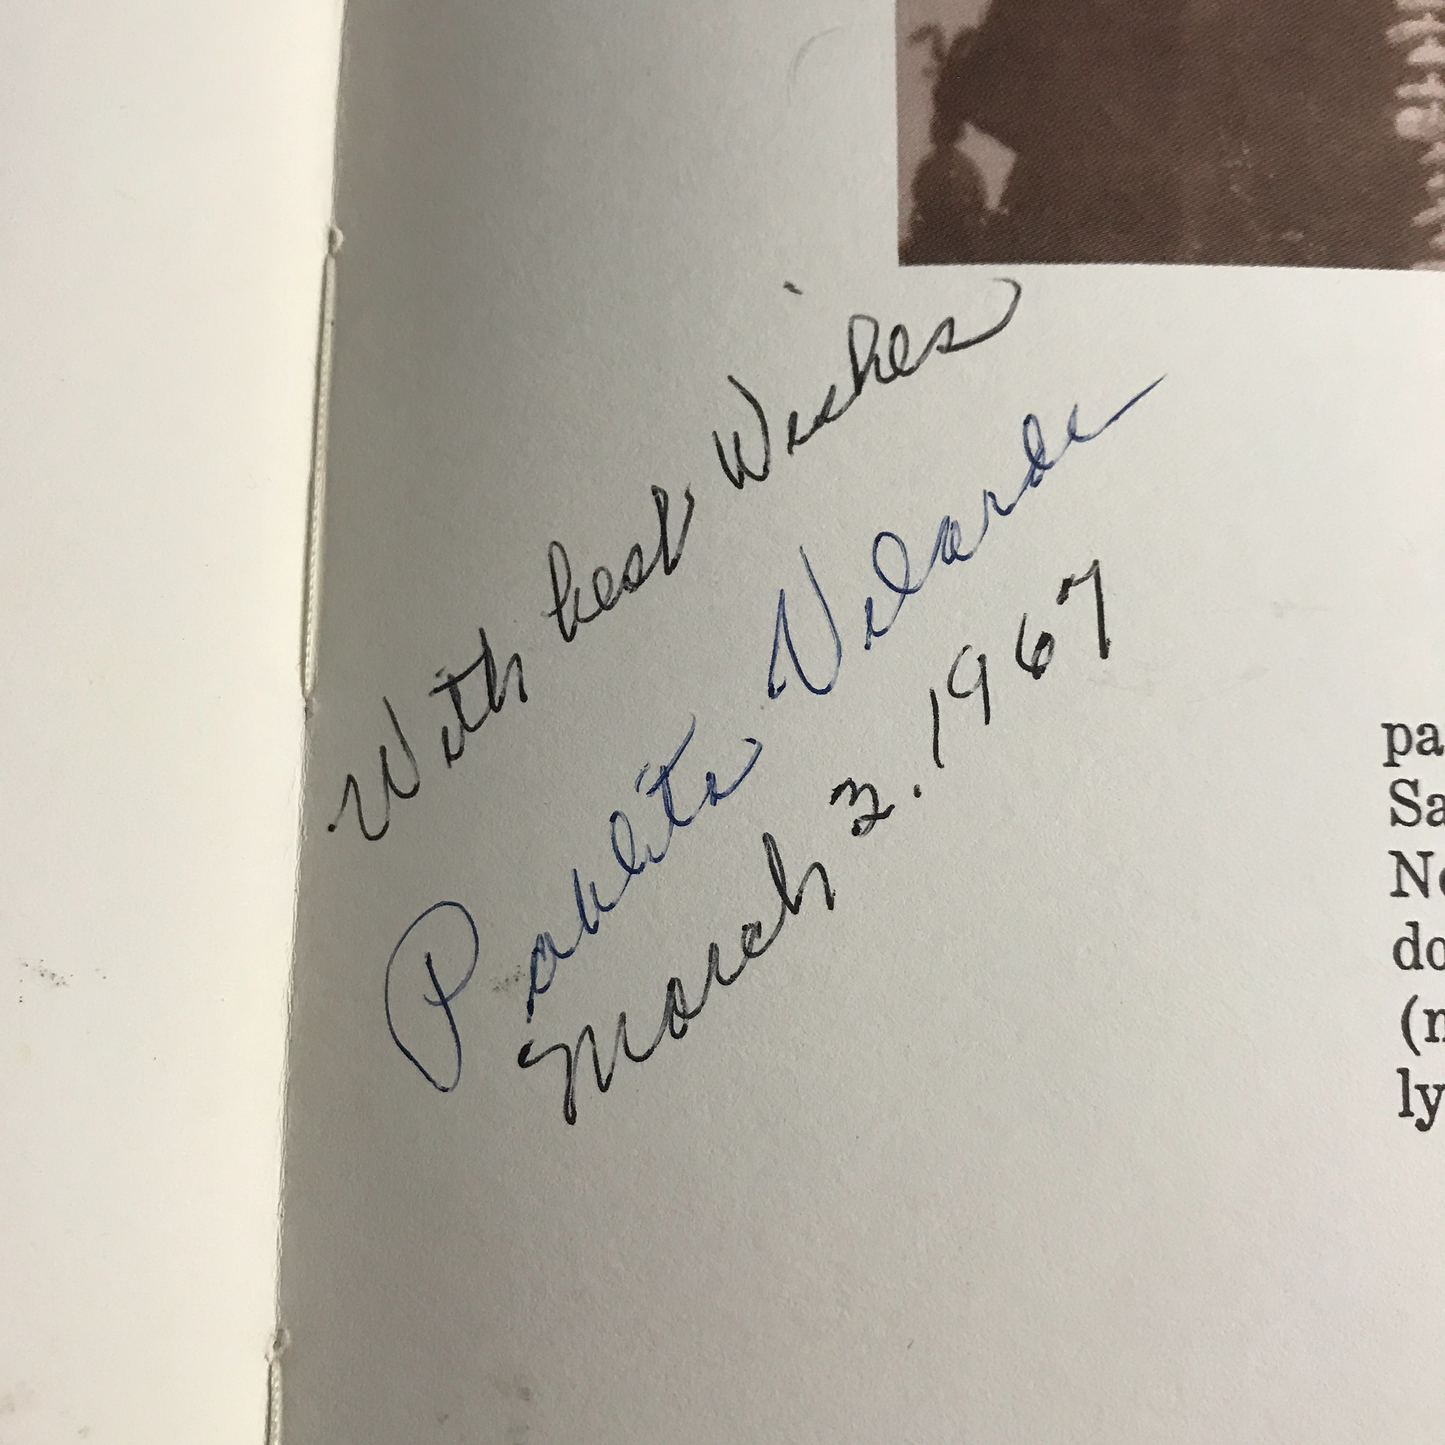 With best Wishes
Pablita Velarde
March 2. 1967
pa
Sa
Ne
do
(n
ly